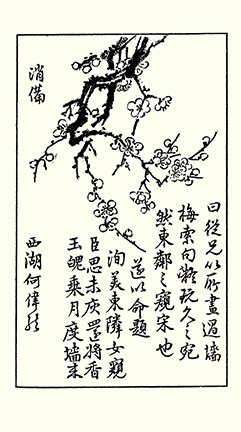 曰從兄以所畫過墻
梅索句凝玩久之宛
然東鄰之窺宋也
遂以命題
洵美東隣女窺
臣思未灰還將香
玉魄乘月度墻來
西湖何偉然
消備